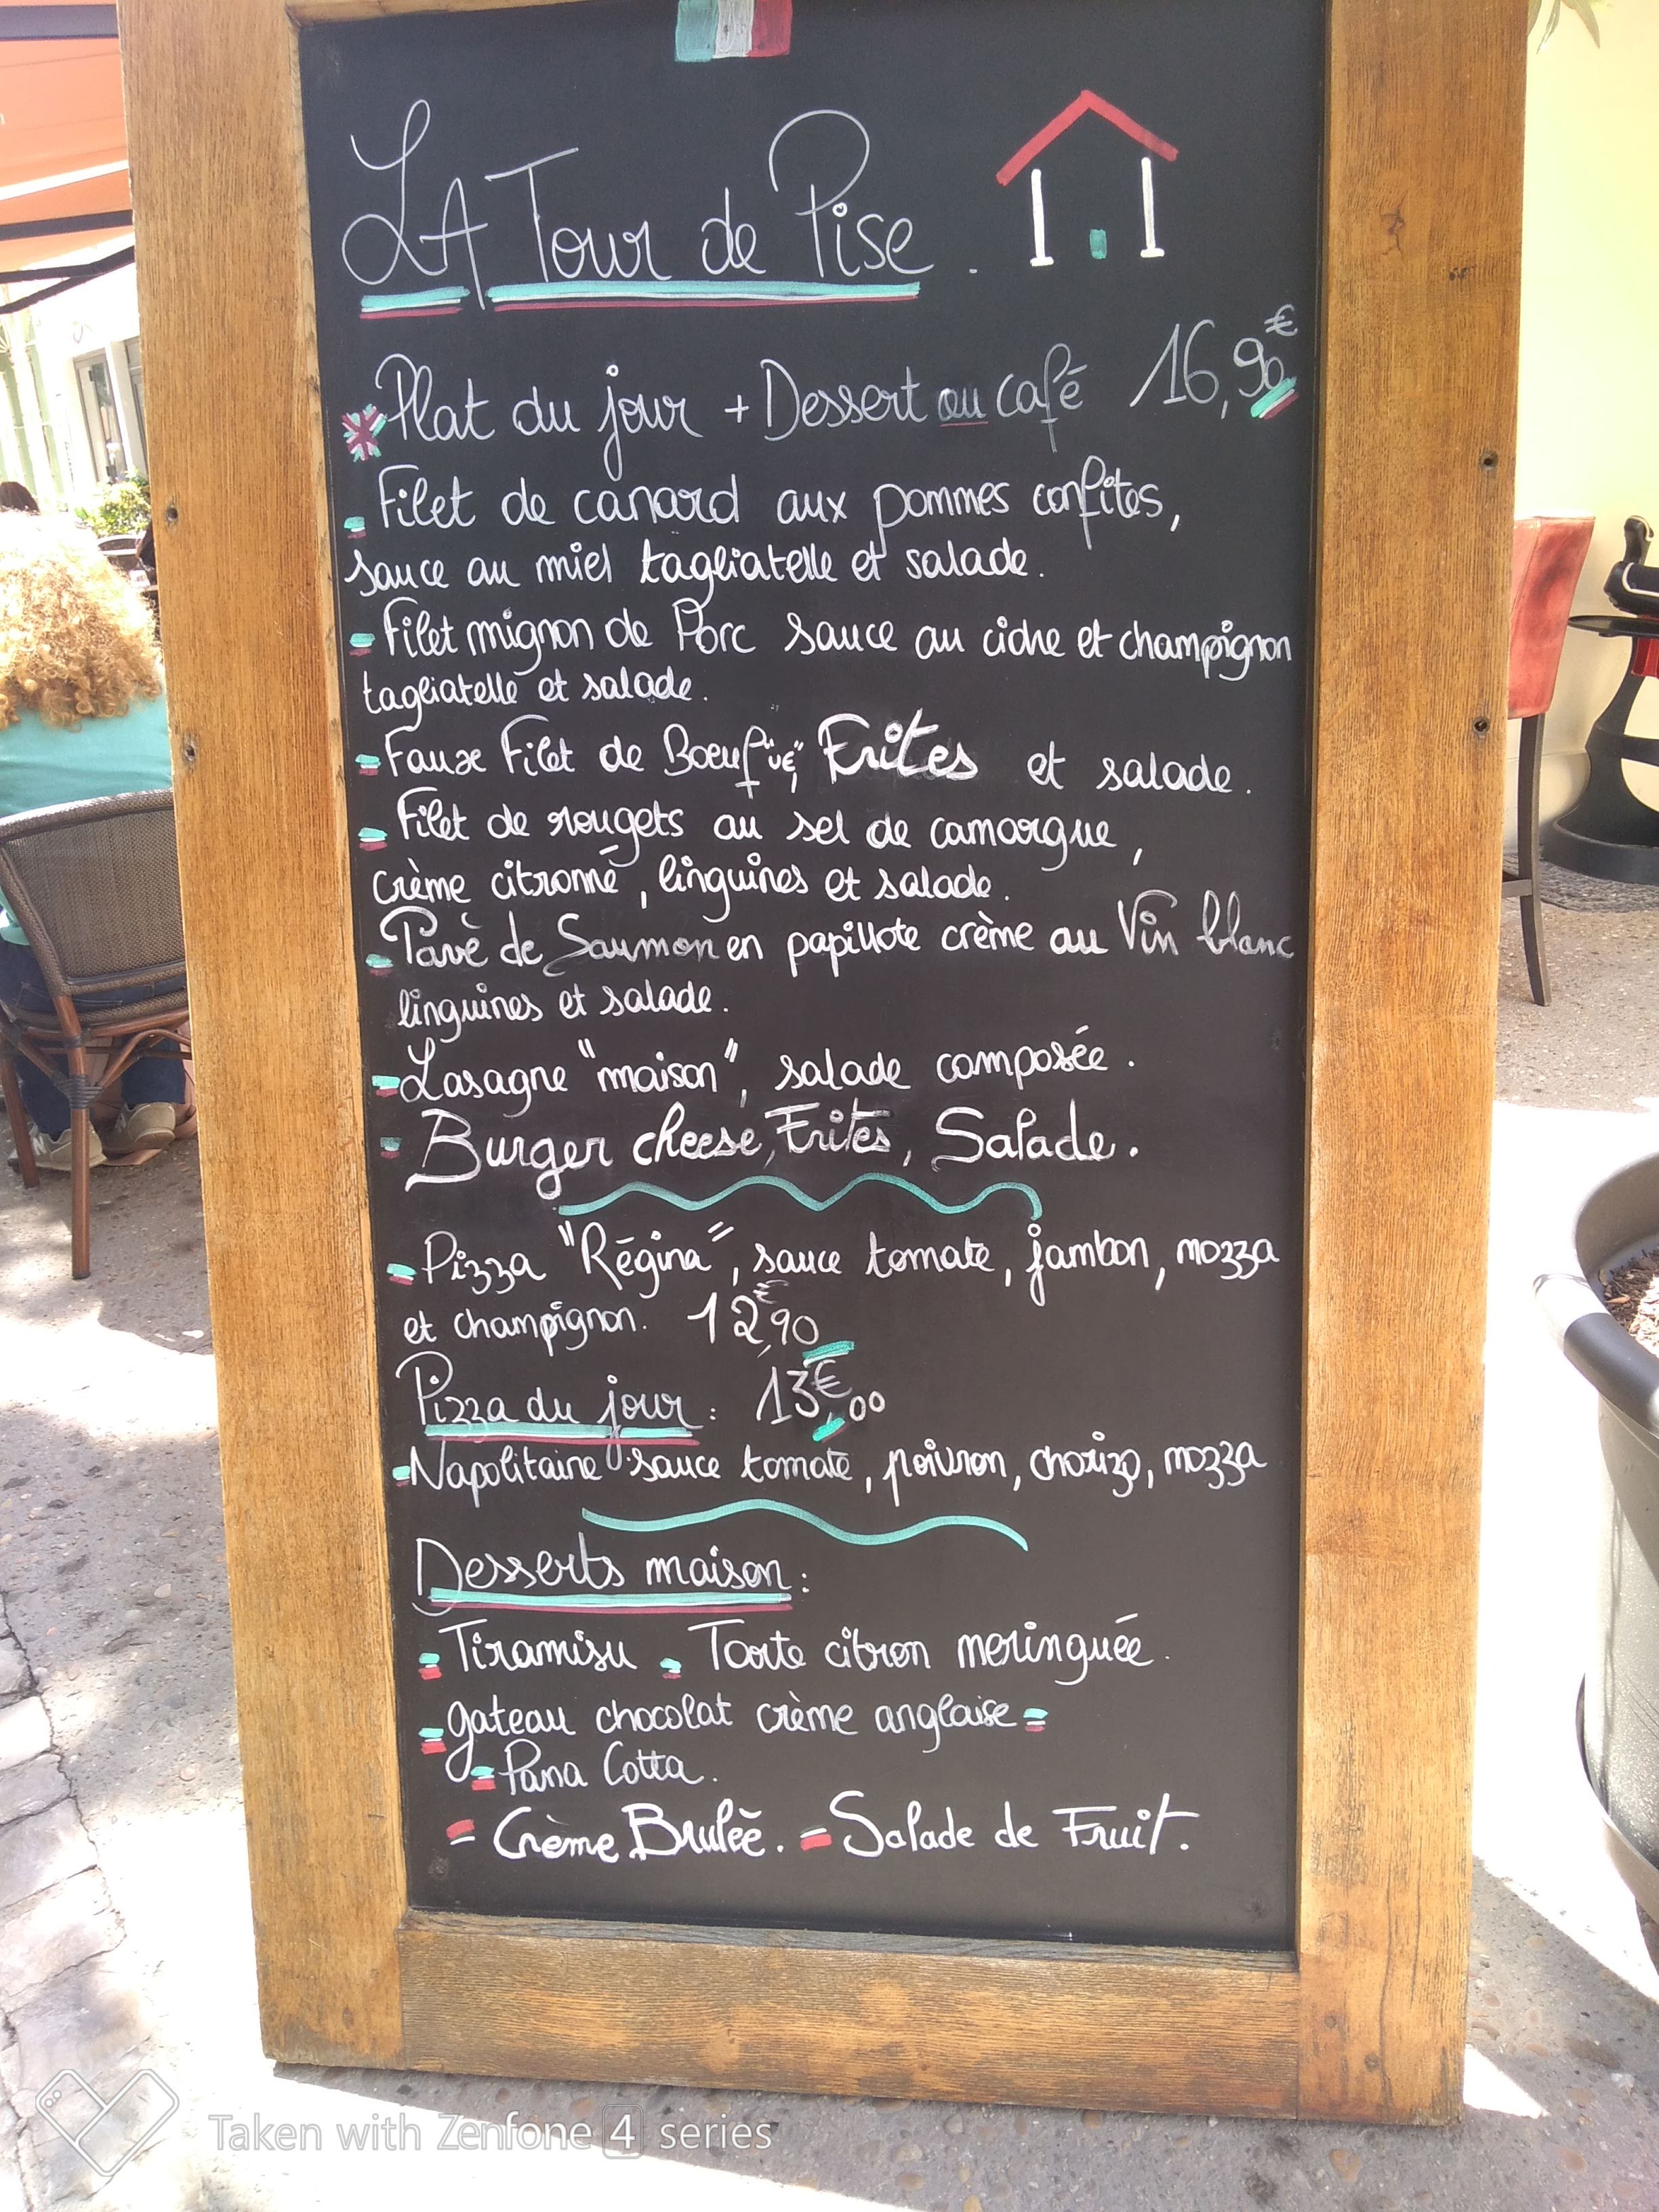 LA Tour de Pise.
Plat du jour + Dessert ou café 16,90€
Filet de canard aux pommes confites,
sauce au miel tagliatelle et salade.
Filet mignon de Porc sauce au cidre et champignon
tagliatelle et salade.
Faux Filet de Boeuf Frites et salade.
Filet de rougets au sel de camargue,
crème citronné, linguines et salade.
Pavé de Saumon en papillote crème au Vin blanc
linguines et salade.
Lasagne "maison", salade composée.
Burger cheese, Frites, Salade.
Pizza "Régina", sauce tomate, jambon, mozza
et champignon. 12,€90
Pizza du jour : 13€,00
Napolitaine : sauce tomate, poivron, chorizo, mozza
Desserts maison :
Tiramisu Tarte citron meringuée.
gateau chocolat crème anglaise
Pana Cotta.
Crème Brulée. Salade de Fruit.
Taken with Zenfone 4 series